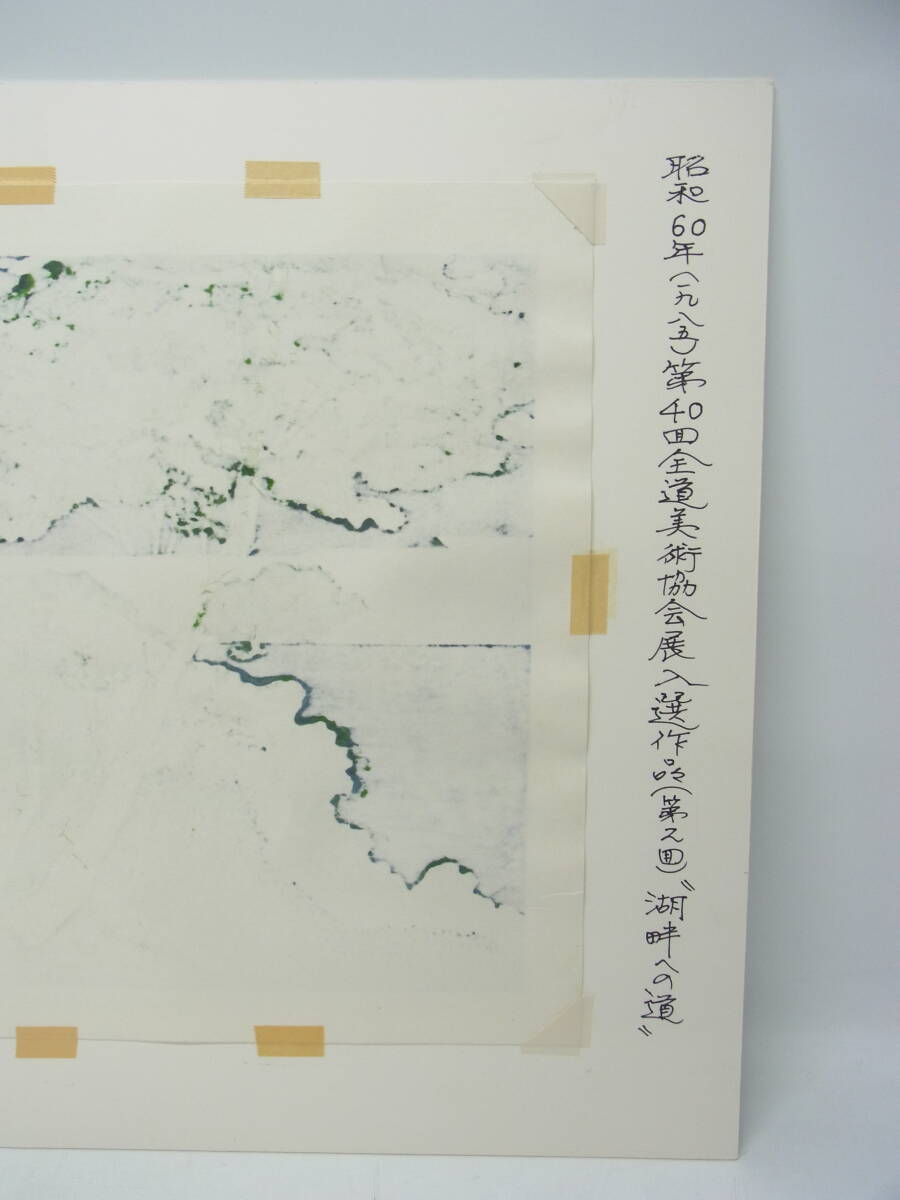 昭和60年(一九八五)第40回全道美術協会展入選作品(第2回)〝湖畔への道〟